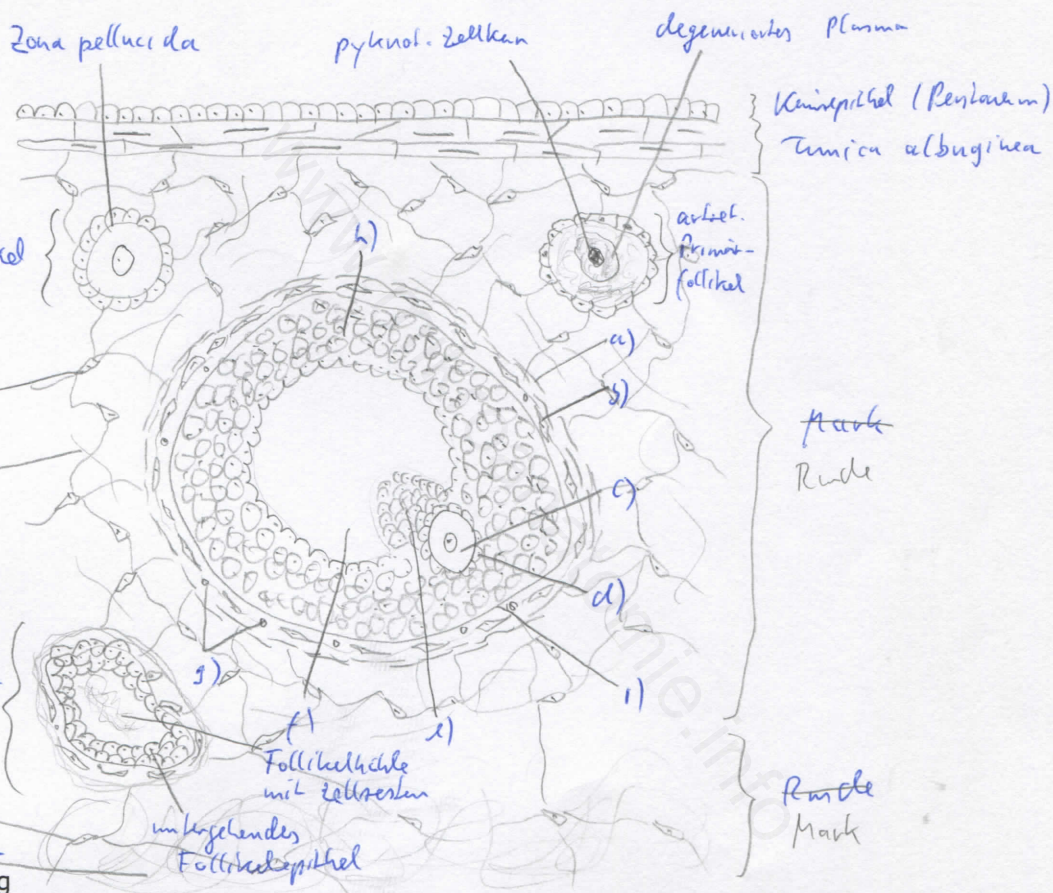 Zona pellucida
pyknot. Zellkern
degeneriertes Plasma
Keimepithel (Peritoneum)
Tunica albuginea
kel
atret.
Primär-
follikel
h)
a)
b)
Mark
Rinde
c)
d)
g)
i)
f)
e)
Follikelhöhle
mit Zellresten
untergehendes
Follikelepithel
Rinde
Mark
www.
mie.info
g